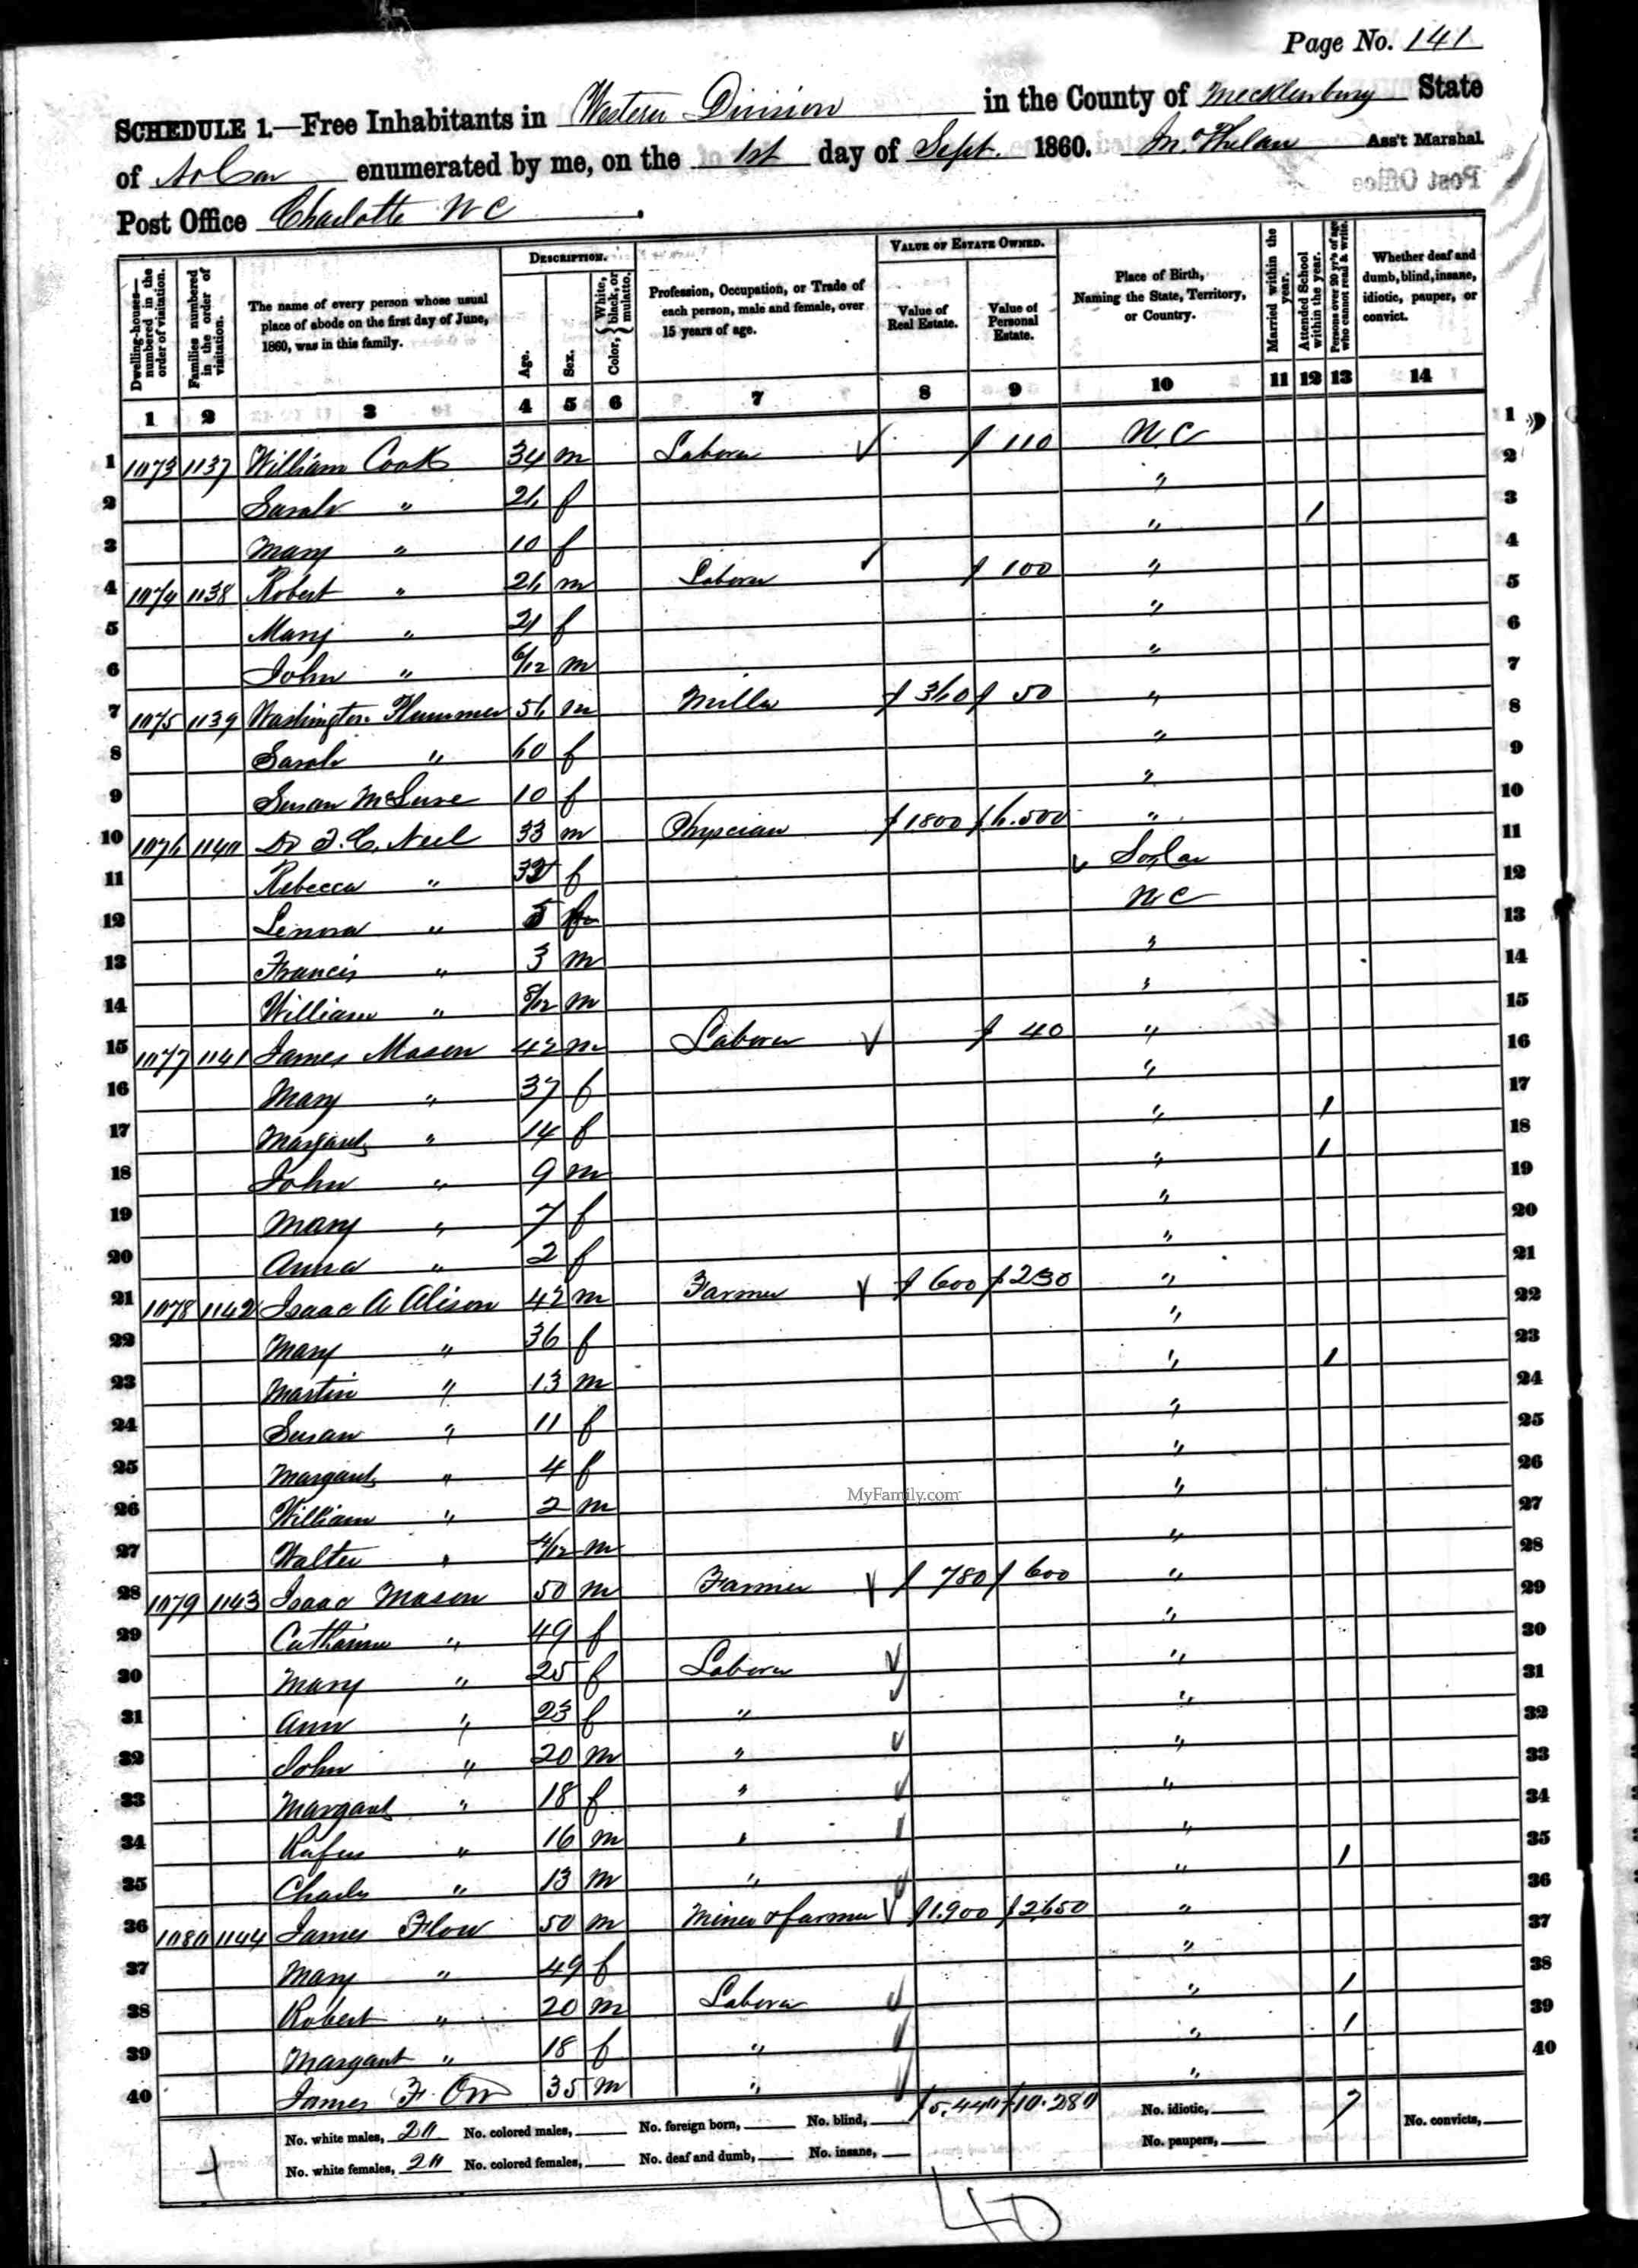 Page No. 141
SCHEDULE 1.—Free Inhabitants in Western Division in the County of Mecklenburg State
of No Car enumerated by me, on the 1st day of Sept. 1860. Ass't Marshal
Post Office Charlotte N C
Dwelling-houses—numbered in the order of visitation.
Families numbered in the order of visitation.
The name of every person whose usual place of abode on the first day of June, 1860, was in this family.
DESCRIPTION.
Age.
Sex.
Color, White, black, or mulatto.
Profession, Occupation, or Trade of each person, male and female, over 15 years of age.
VALUE OF ESTATE OWNED.
Value of Real Estate.
Value of Personal Estate.
Place of Birth, Naming the State, Territory, or Country.
Married within the year.
Attended School within the year.
Persons over 20 yr's of age who cannot read & write.
Whether deaf and dumb, blind, insane, idiotic, pauper, or convict.
1 2 3 4 5 6 7 8 9 10 11 12 13 14
1 1073 1137 William Cook 34 m Laborer $ 110 N C 1
2 Sarah " 26 f " 2
3 Mary " 10 f " / 3
4 1074 1138 Robert " 26 m Laborer $ 100 " 4
5 Mary " 21 f " 5
6 John " 6/12 m " 6
7 1075 1139 Washington Plummer 56 m Miller $ 360 $ 50 " 7
8 Sarah " 60 f " 8
9 Susan McLure 10 f " 9
10 1076 1140 Dr Neel 33 m Physcian $ 1800 $ 6.500 " 10
11 Rebecca " f So Car 11
12 Lenora " 5 f N C 12
13 Francis " 3 m " 13
14 William " 8/12 m " 14
15 1077 1141 James Mason 42 m Laborer $ 40 " 15
16 Mary " 37 f " 16
17 Margaret " 14 f " / 17
18 John " 9 m " / 18
19 Mary " 7 f " 19
20 Anna " 2 f " 20
21 1078 1142 Isaac A Alison 42 m Farmer $ 600 $ 230 " 21
22 Mary " 36 f " 22
23 Martin " 13 m " / 23
24 Susan " 11 f " 24
25 Margaret " 4 f " 25
26 William " 2 m " 26
27 Walter " 4/12 m " 27
28 1079 1143 Isaac Mason 50 m Farmer $ 780 $ 600 " 28
29 Catharine " 49 f " 29
30 Mary " 25 f Laborer " 30
31 Ann " 23 f " " 31
32 John " 20 m " " 32
33 Margaret " 18 f " " 33
34 Rufus " 16 m " " 34
35 Charles " 13 m " " / 35
36 1080 1144 James Flow 50 m Miner & farmer $ 1.900 $ 2,650 " 36
37 Mary " 49 f " 37
38 Robert " 20 m Laborer " / 38
39 Margaret " 18 f " " / 39
40 James F. Orr 35 m " " 40
No. white males, 20 No. colored males, No. foreign born, No. blind, $ 5.440 $ 10.280 No. idiotic, 7 No. convicts,
No. white females, 20 No. colored females, No. deaf and dumb, No. insane, No. paupers,
40
MyFamily.com